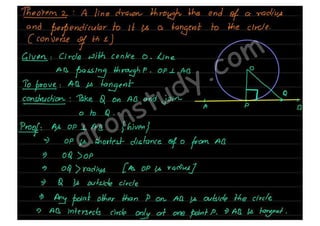 Theorem 2 : A line drawn through the end of a radius
and perpendicular to it is a tangent to the circle.
(converse of th 1)
Given : Circle with centre O. Line
AB passing through P. OP ⊥ AB
To prove : AB is tangent
construction : Take Q on AB and join
O to Q.
Proof : As OP ⊥ AB (given)
⇒ OP is shortest distance of O from AB
⇒ OQ > OP
⇒ OQ > radius [As OP is radius]
⇒ Q is outside circle
⇒ Any point other than P on AB is outside the circle
⇒ AB intersects circle only at one point P. ⇒ AB is tangent.
O
A P Q B
aronstudy.com